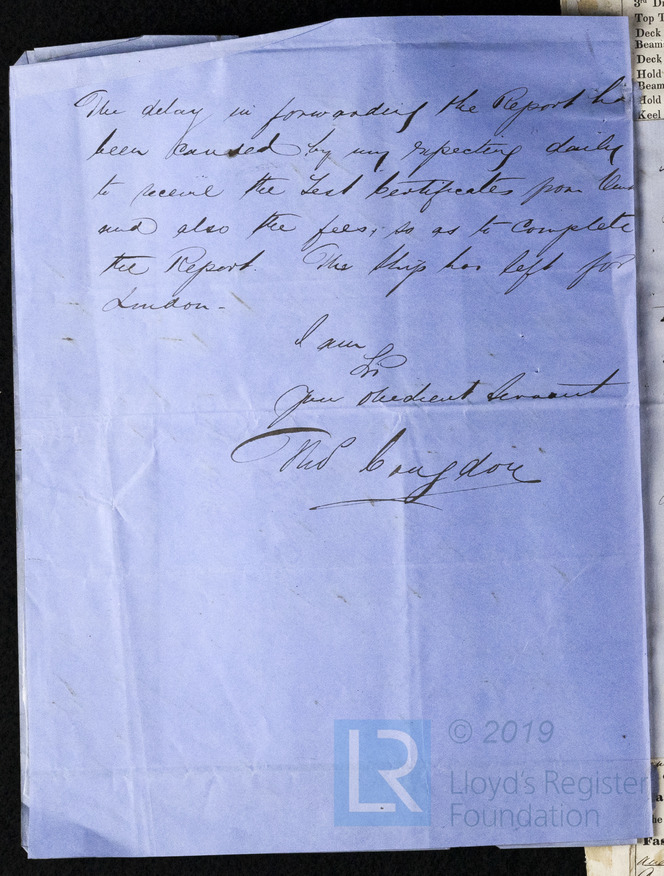 3rd D
Top T
Deck
Beam
Deck
Hold
Beam
Hold
Keel
The delay in forwarding the Report ha
been caused by my expecting daily
to receive the Test Certificates from
and also the fees, so as to complete
the Report. The Ship has left for
London -
I am
Sir
Your obedient Servant
Thos Congdon
© 2019
LR
Lloyd's Register
Foundation
Fas